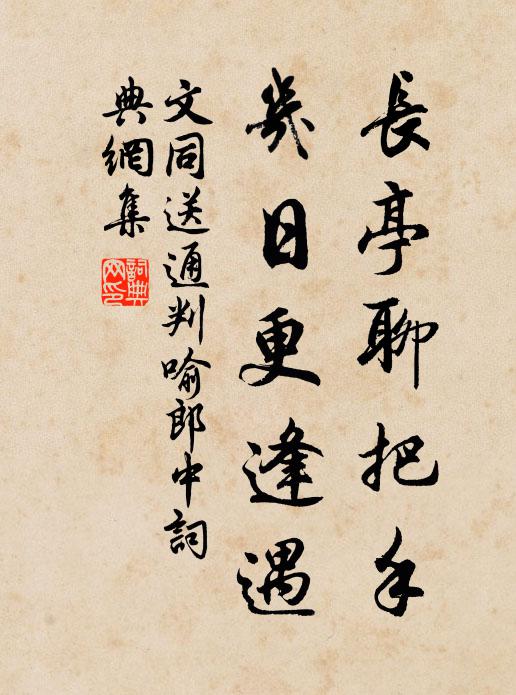 長亭聊把手
幾日更逢遇
文同送通判喻郎中詞
典網集
詞典
网印